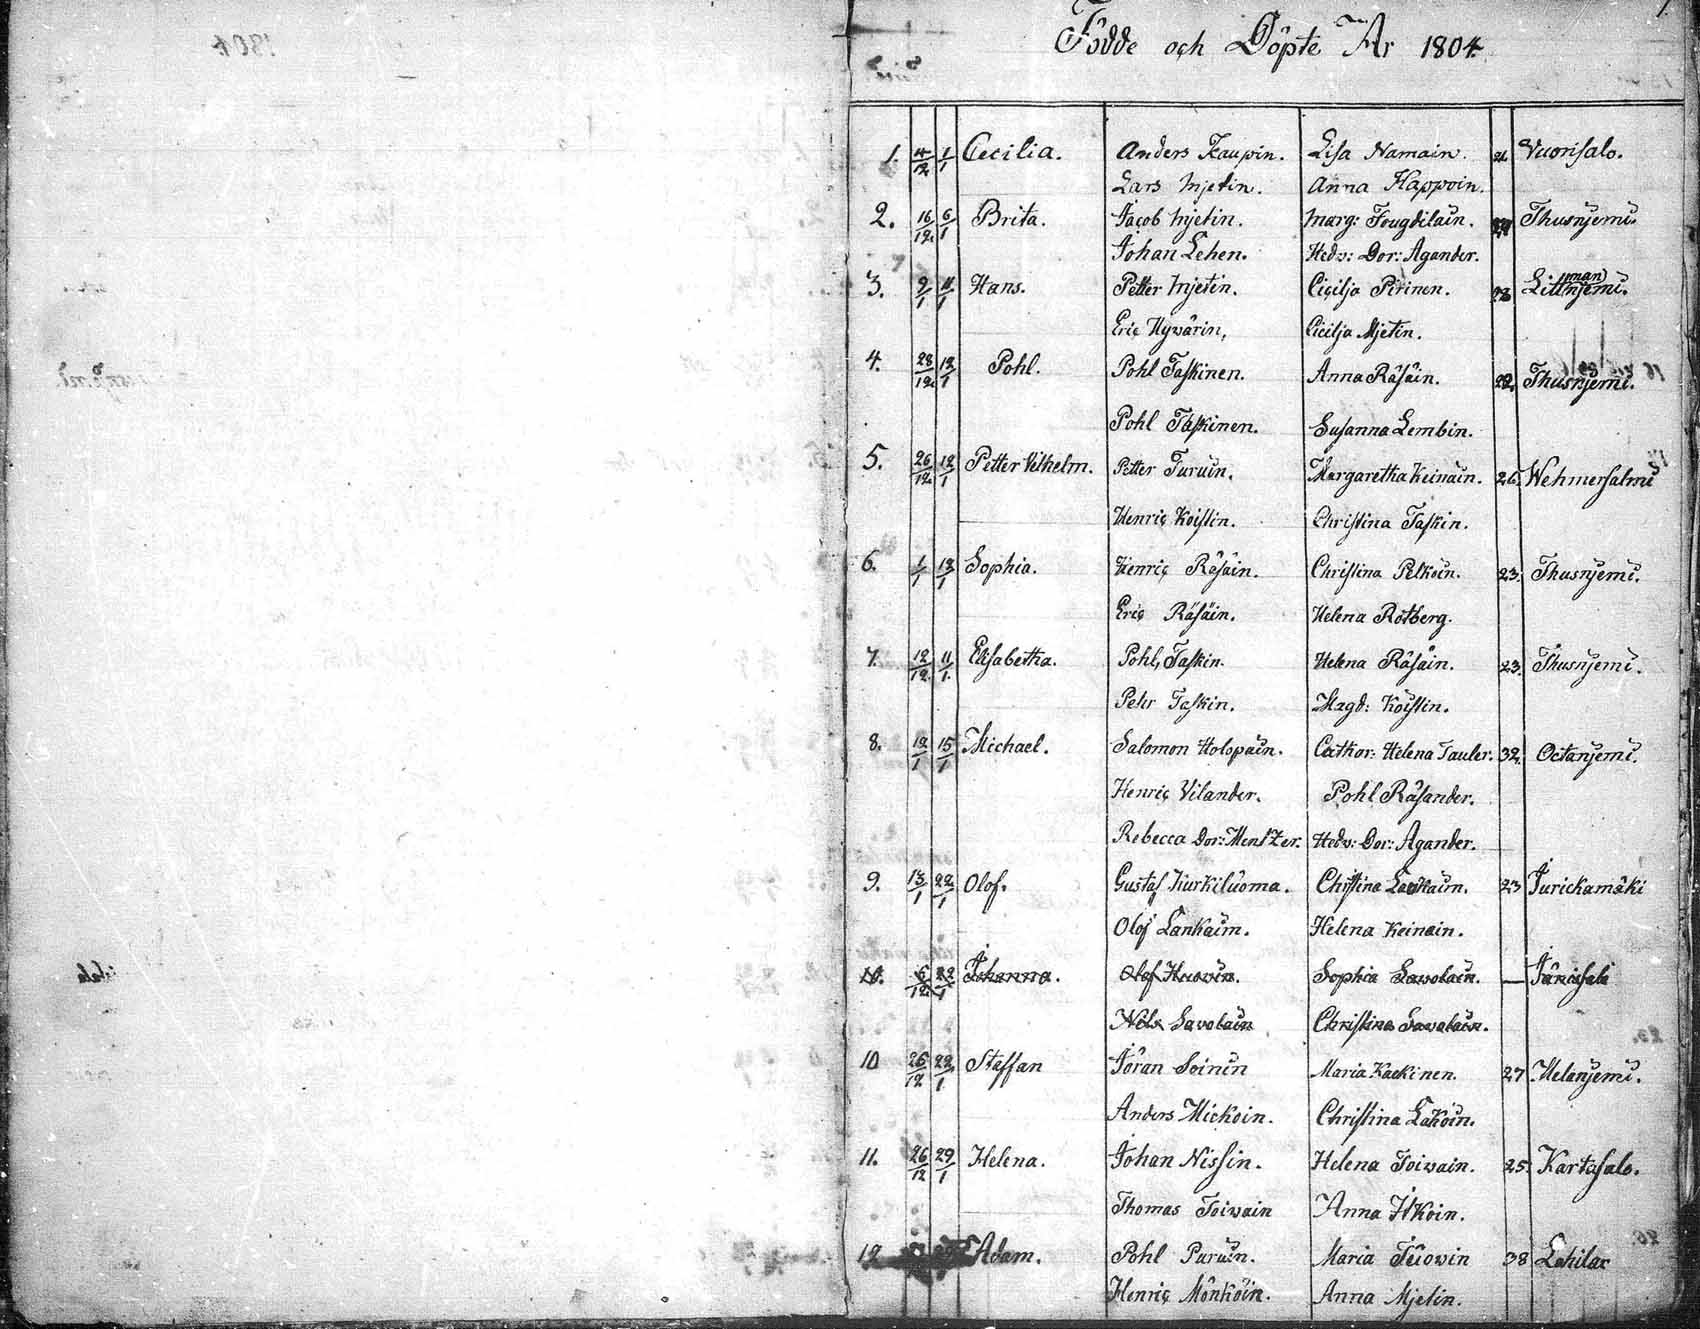 Födde och Döpte År 1804.
1. 4/12 1/1 Cecilia. Anders Kaupin. Lisa Namain. 21. Vuorisalo.
Lars Mjetin. Anna Happoin.
2. 16/12. 6/1 Brita. Jacob Mjetin. Marg: Fougdilain. Thusnjemi.
Johan Lehen. Hedv: Dor: Agander.
3. 9/1 11/1 Hans. Petter Mjetin. Cicilja Pirinen. Littmannjemi.
Eric Hyvärin, Cicilja Mjetin.
4. 28/12. 12/1 Pohl. Pohl Taskinen. Anna Räsäin. 22. Thusnjemi.
Pohl Taskinen. Susanna Lembin.
5. 26/12 12/1 Petter Vilhelm. Petter Turuin. Margaretha Keinäin. 26. Wehmersalmi
Henric Koistin. Christina Taskin.
6. 1/1 13/1 Sophia. Henric Räsäin. Christina Pelkoin. 23. Thusnjemi.
Eric Räsäin. Helena Rotberg.
7. 12/12. 11/1. Elisabetha. Pohl, Taskin. Helena Räsäin. 23. Thusnjemi.
Pehr Taskin. Magd: Koistin.
8. 12/1 15/1 Michael. Salomon Holopain. Cathar: Helena Tauler. 32. Octanjemi.
Henric Vilander. Pohl Räsander.
Rebecca Dor: Mentzer. Hedv: Dor: Agander.
9. 13/1 22/1 Olof. Gustaf Kurkiluoma. Christina Lankain. 23 Jurickamäki
Olof Lankaim. Helena Keinain.
10. 6/12. 22/1 Johanna. Olof Huovin. Sophia Savolain. — Jänissalo
Nils Savolain Christina Savolain.
10 26/12 22/1 Staffan Jöran Soinin Maria Kaekinen. 27 Melanjemi.
Anders Mickoin. Christina Lakoin.
11. 26/12 29/1 Helena. Johan Nissin. Helena Toivain. 25. Kartasalo.
Thomas Toivain Anna Ikoin.
12 Adam. Pohl Puruin. Maria 38 Lahilax
Henric Mönköin. Anna Mjetin.